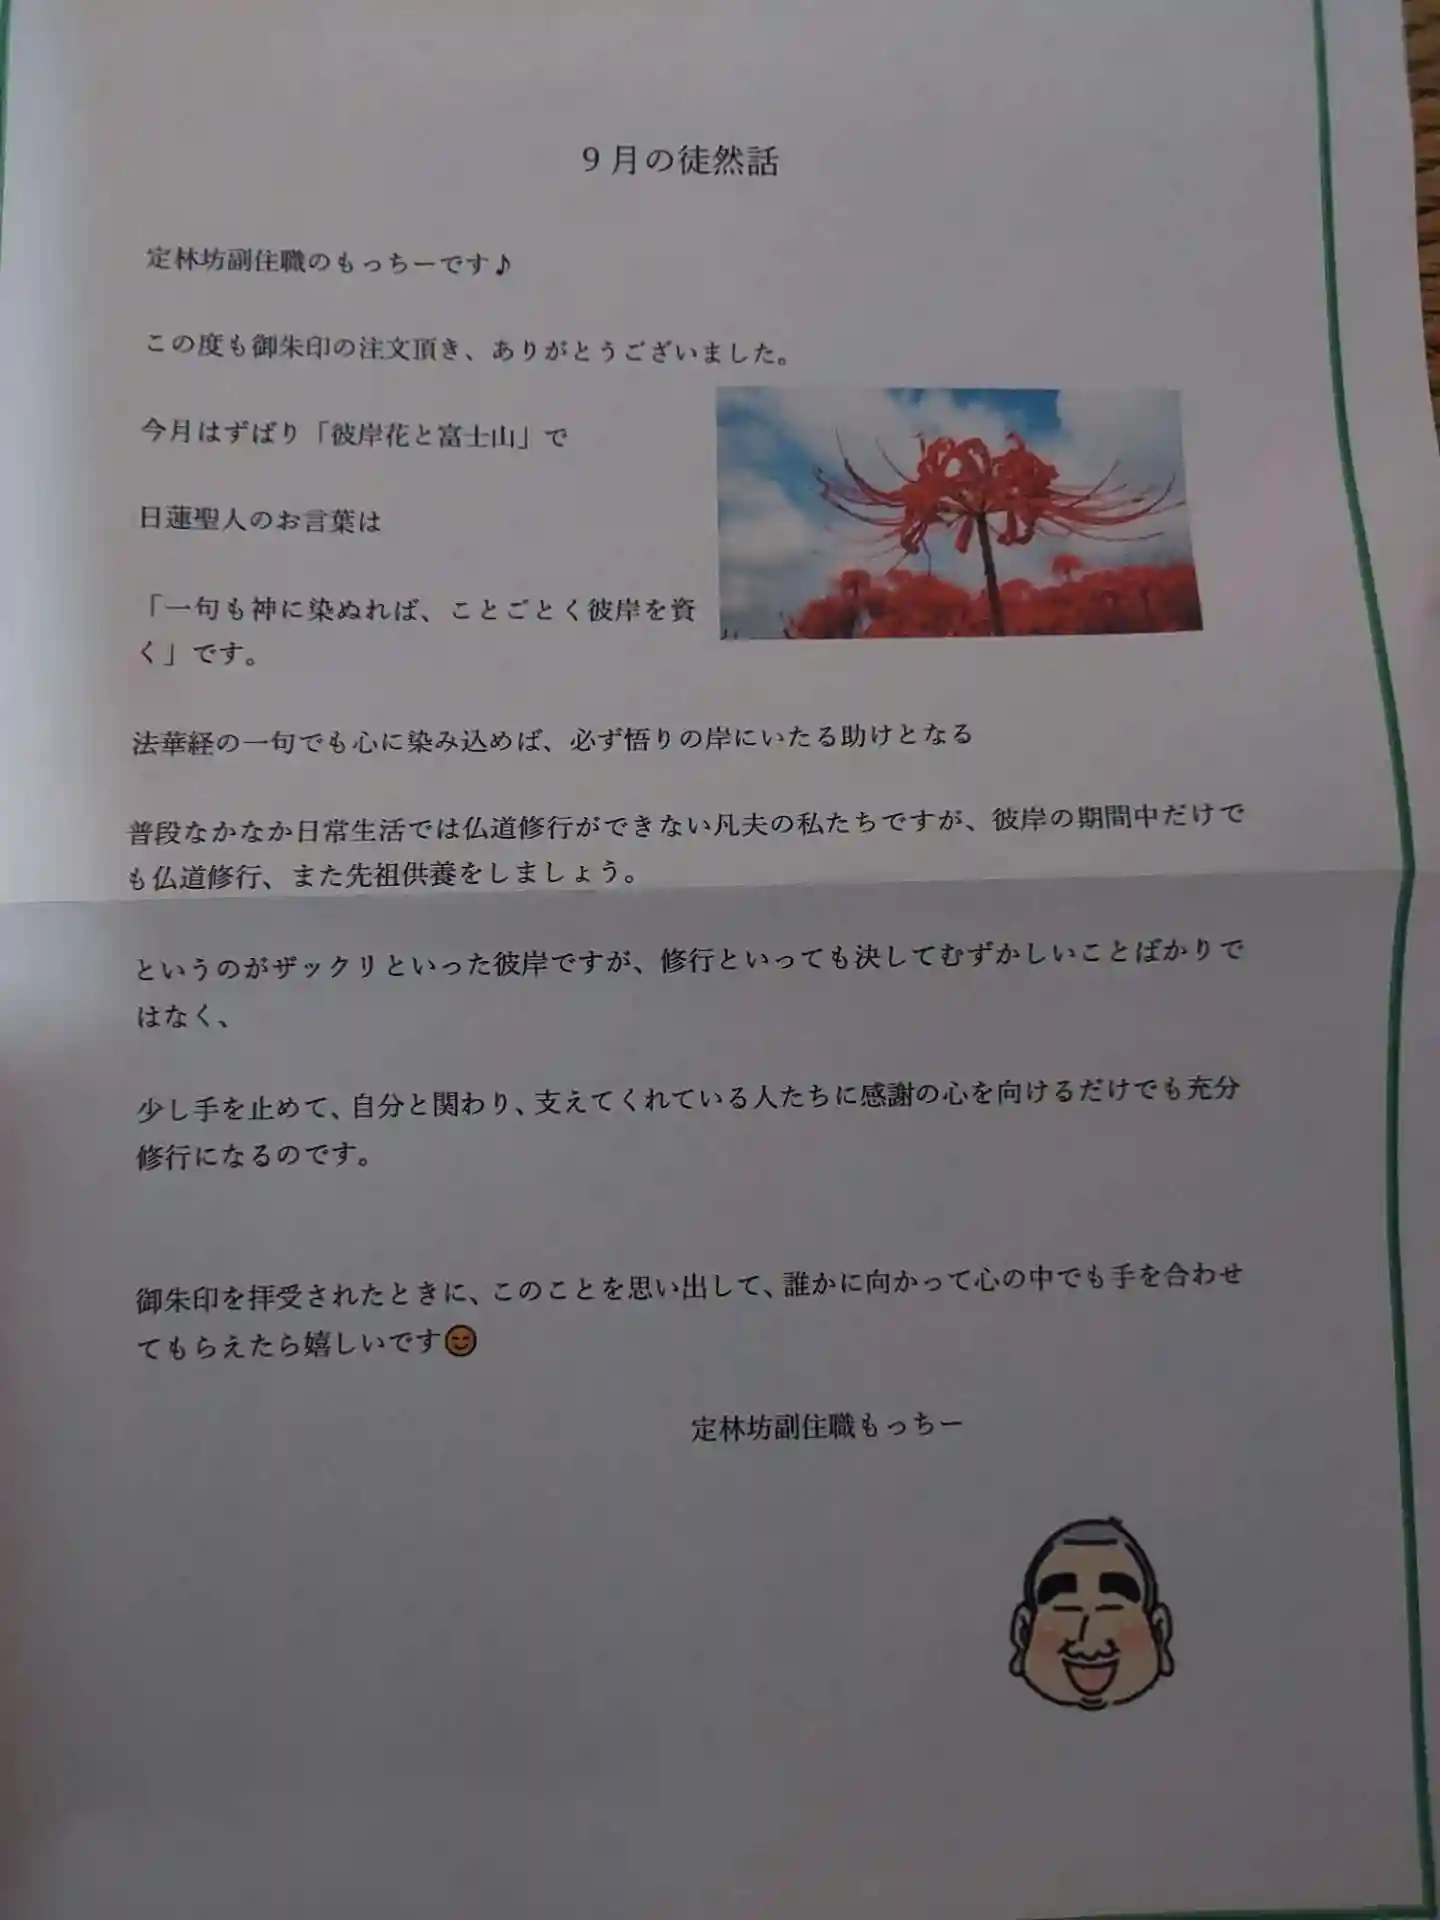 ９月の徒然話
定林坊副住職のもっちーです♪
この度も御朱印の注文頂き、ありがとうございました。
今月はずばり「彼岸花と富士山」で
日蓮聖人のお言葉は
「一句も神に染ぬれば、ことごとく彼岸を資
く」です。
法華経の一句でも心に染み込めば、必ず悟りの岸にいたる助けとなる
普段なかなか日常生活では仏道修行ができない凡夫の私たちですが、彼岸の期間中だけで
も仏道修行、また先祖供養をしましょう。
というのがザックリといった彼岸ですが、修行といっても決してむずかしいことばかりで
はなく、
少し手を止めて、自分と関わり、支えてくれている人たちに感謝の心を向けるだけでも充分
修行になるのです。
御朱印を拝受されたときに、このことを思い出して、誰かに向かって心の中でも手を合わせ
てもらえたら嬉しいです😊
定林坊副住職もっちー